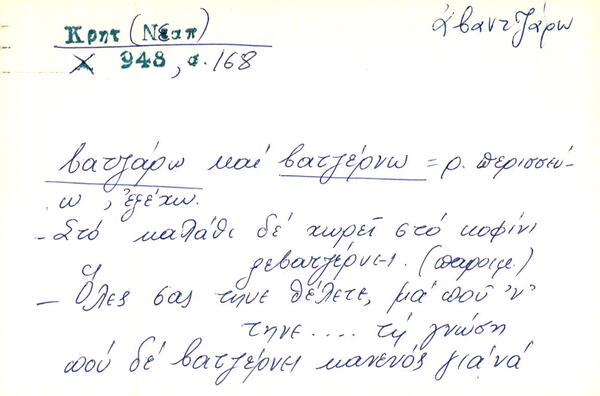 Κρητ (Νεαπ)
ἀβαντζάρω
Χ 948, σ. 168
βατζάρω καί βατζέρνω = ρ. περισσεύ-
ω, ἐξέχω.
- Στό καλάθι δέ χωρεῖ στό κοφίνι
ξεβατζέρνει. (παροιμ.)
- Ὅλες σας τηνε θέλετε, μά ποῦ 'ν'
τηνε .... τή γνώση
πού δέ βατζέρνει κανενός γιά νά